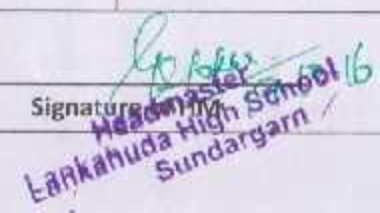 16
Signature of HM
Headmaster
Lankahuda High School
Sundargarh